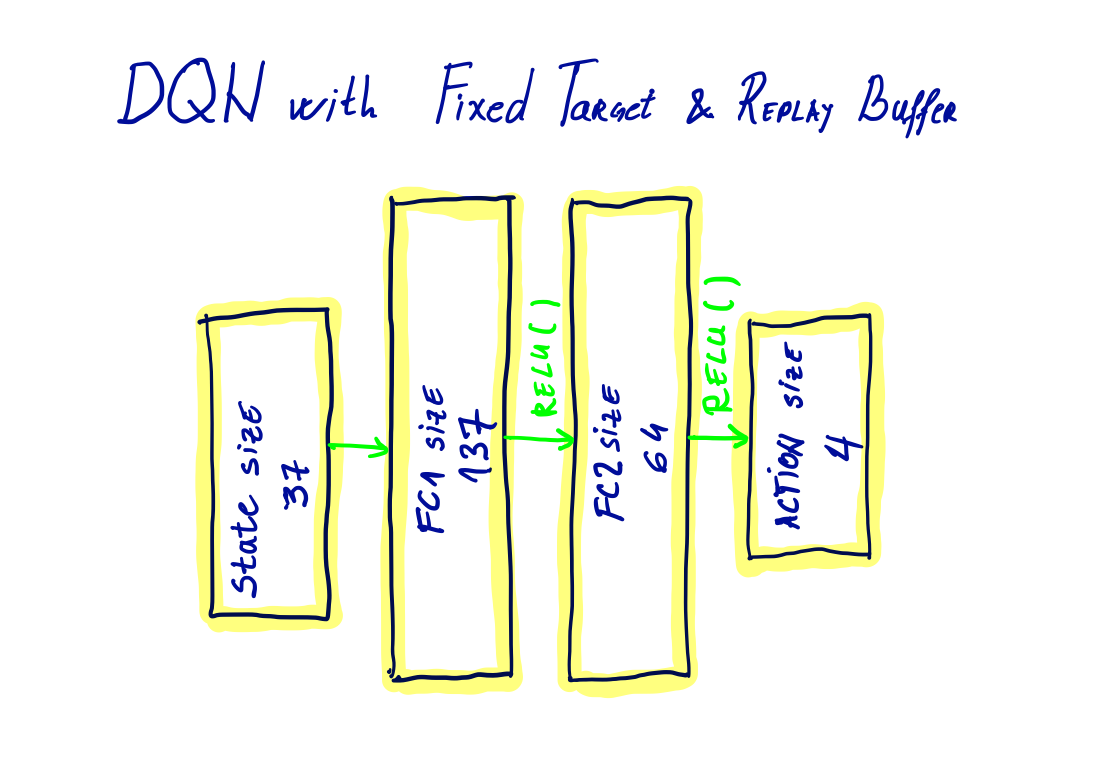 DQN with Fixed Target & Replay Buffer
State size
37
FC1 size
137
RELU()
FC2 size
64
RELU()
ACTION size
4